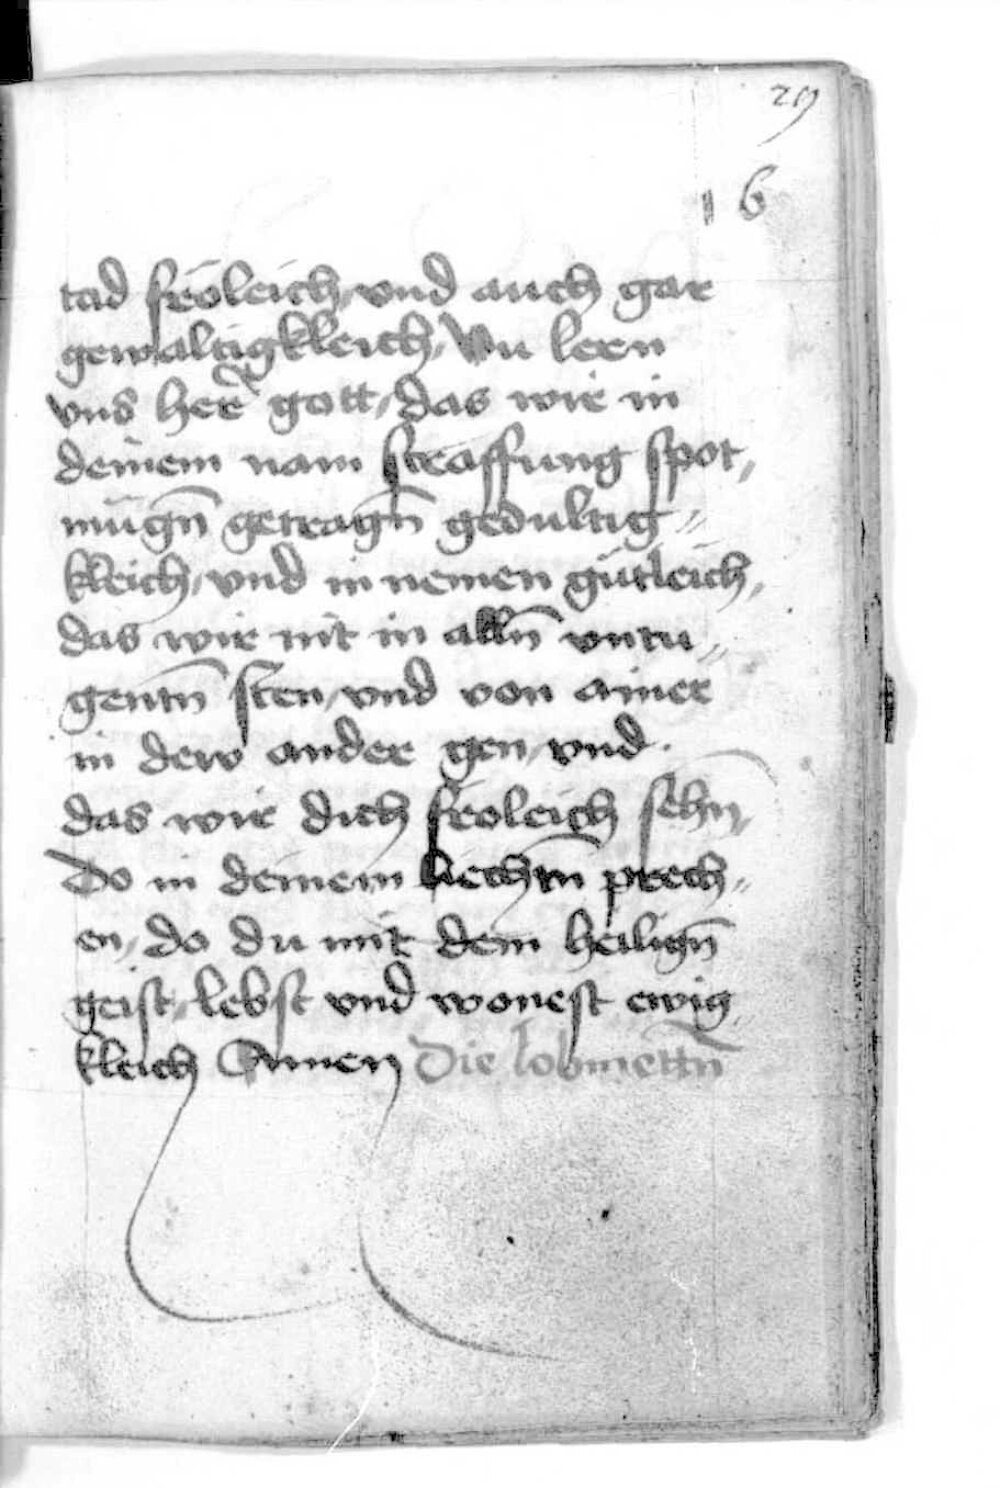 29
16
tad fröleich, vnd auch gar
gewaltigkleich, Vn leen
vns her̃ gott, das wir in
deinem nam straffung spot,
mügn̄ getragn̄ gedultig
kleich, vnd in nemen gütleich,
das wir nit in alln̄ vntu
gentn̄ sten, vnd von ainer
in dew ander gen, vnd
das wir dich froleich sehn,
do in deinem liechtn̄ prech
en, do du mit dem heilign̄
geist, lebst vnd wonest ewig
kleich Amen Die lobmettn̄